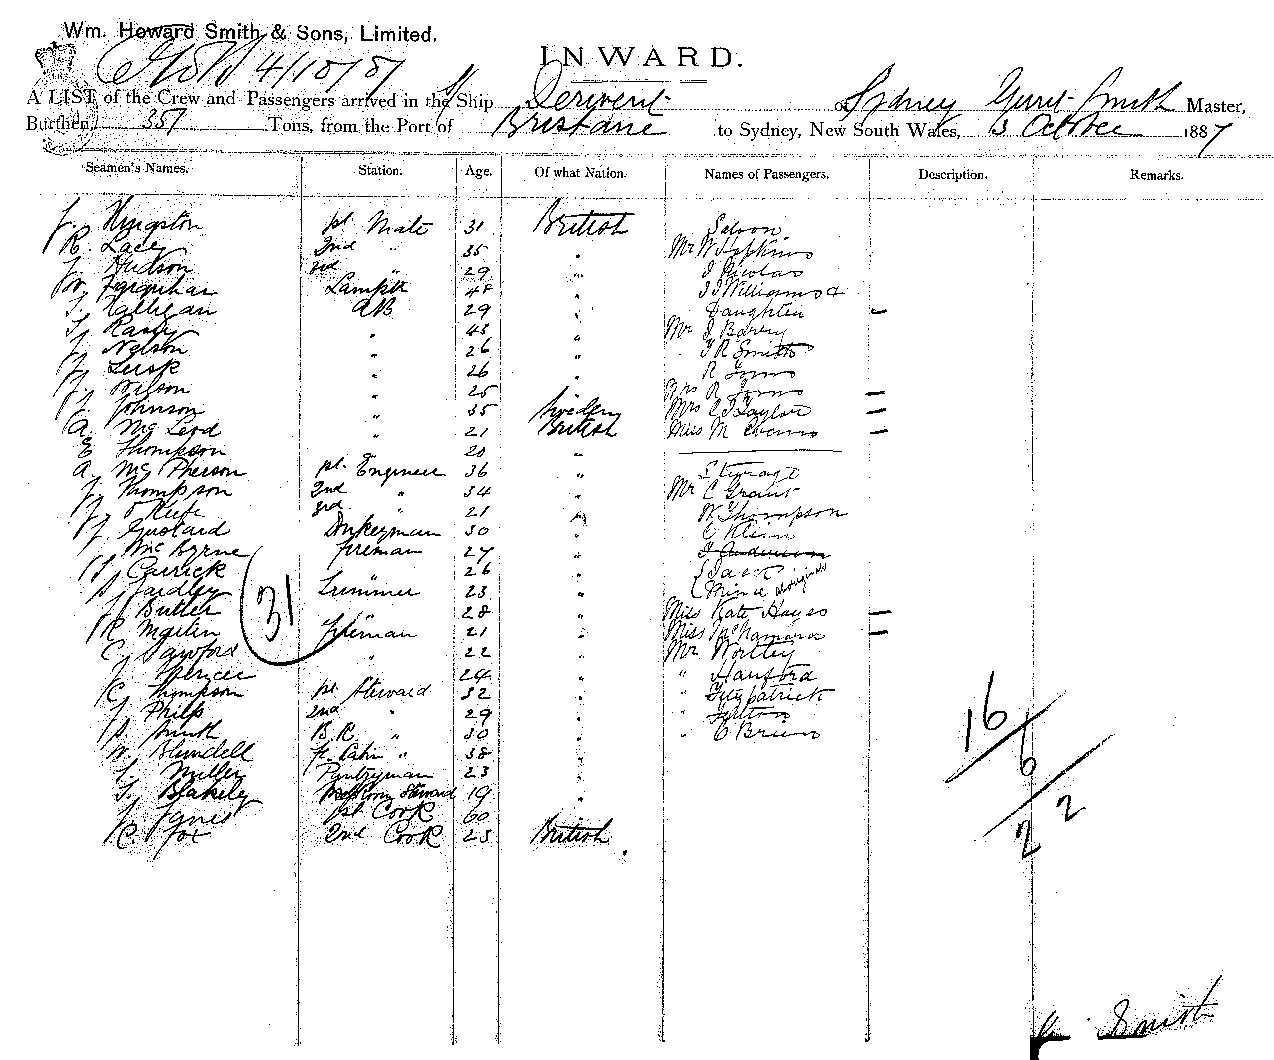 Wm. Howard Smith & Sons, Limited.
4/10/87
INWARD.
A LIST of the Crew and Passengers arrived in the Ship Derwent of Sydney Gerrit Smith Master,
Burthen 357 Tons, from the Port of Brisbane to Sydney, New South Wales, 3 October 1887
Seamen's Names. Station. Age. Of what Nation. Names of Passengers. Description. Remarks.
J. Kingston 1st Mate 31 British Saloon
R. Lacey 2nd " 35 " Mr W Hopkins
J. Hudson 3rd " 29 " J Nicolas
W. Farquhar Lamps 48 " J J Williams &
J. Halligan AB 29 " Daughter –
T. " 48 " Mr J Barry
J. Nelson " 26 " J R Smith
J. Leisk " 26 " R
J. Wilson " 25 " Mrs R –
J. Johnson " 35 Sweden Mrs C J Taylor –
A. McLeod " 21 British Miss M Evans –
E Thompson 20 "
A. McPherson 1st Engineer 36 " Steerage
J. Thompson 2nd " 34 " Mr C Grant
J. O'Keefe 3rd " 21 " W Thompson
J. Gustard Donkeyman 30 " C Klein
J. McByrne fireman 27 " J Anderson
J. Carrick 26 " Jack
S. Yardley Trimmer 23 " Minnie aboriginals
J. Butler 28 " Miss Kate Hayes –
R. Martin fireman 21 " Miss McNamara –
C. Sawford " 22 " Mr Wortley
J. Spencer 24 " " Hanford
C. Thompson 1st Steward 32 " " Fitzpatrick
J. Philp 2nd " 29 " " Fulton
S. Smith B.R. " 30 " " O Brien
W. Blundell fr Cabin " 38 "
J. Miller Pantryman 23 "
J. Blakeley Messroom Steward 19 "
J. Jones 1st Cook 60
C. Fox 2nd Cook 23 British
31
16
6
2
2
G. Smith